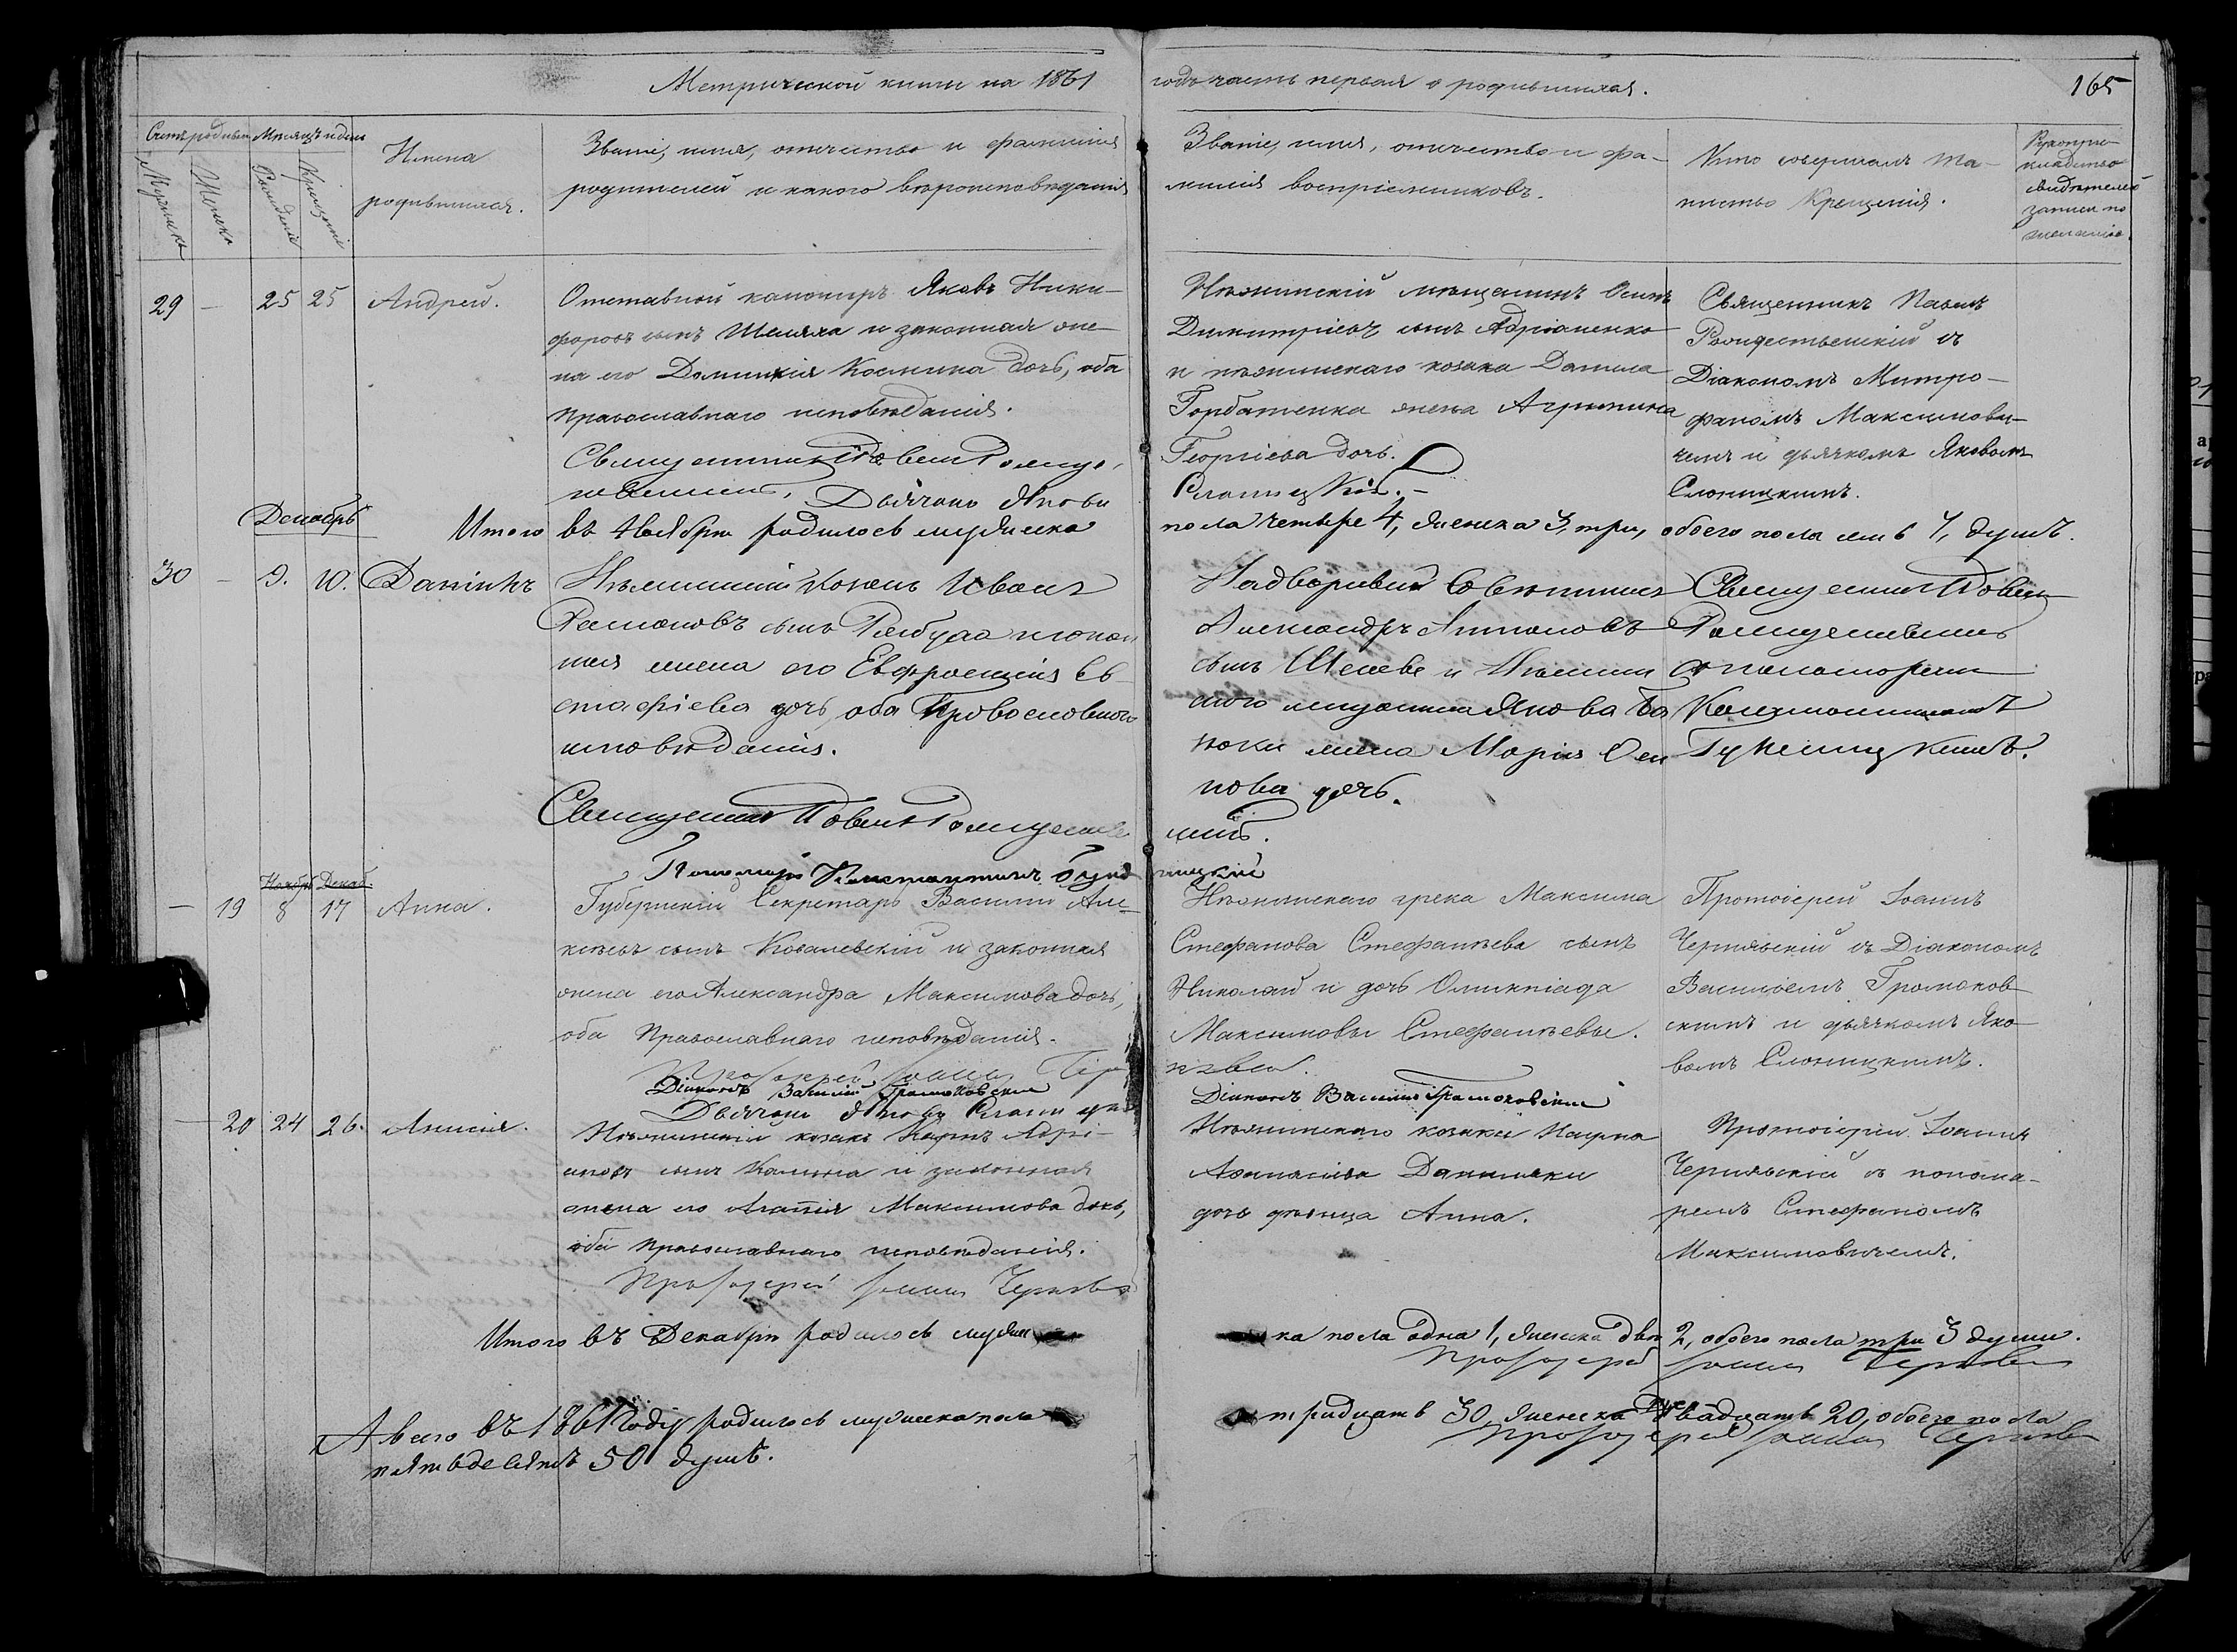 Метрической книги на 1861 годъ часть первая о родившихся.
165
Счетъ родивш.
Мужеска
Женска
Мѣсяцъ и день
Рожденія
Крещенія
Имена
родившихся.
Званіе, имя, отчество и фамилія
родителей и какого вѣроисповѣданія
Званіе, имя, отчество и фа-
милія воспріемниковъ.
Кто совершалъ та-
инство Крещенія.
Рукопри-
кладство
свидѣтелей
записи по
желанію.
29 — 25 25 Андрей.
Отставной канониръ Яковъ Ники-
форовъ сынъ Шеляха и законная же-
на его Домникія Космина дочь, оба
православнаго исповѣданія.
Священникъ Павелъ Рождествен
Дьячокъ Яковъ
Нѣжинскій мѣщанинъ Осипъ
Димитріевъ сынъ Адріаненко
и нѣжинскаго козака Данила
Горбатенка жена Агрипина
Георгіева дочь.
Слоницкій.–
Священникъ Павелъ
Рождественскій съ
Діакономъ Митро-
фаномъ Максимови-
чемъ и дьячкомъ Яковомъ
Слоницкимъ.
Итого въ Ноябрѣ родилось мужеска пола четыре 4, женска 3, три, обоего пола семь 7, душъ.
Декабрь
30 — 9. 10. Даніилъ
Нѣжинскій козакъ Иванъ
Романовъ сынъ Рябуха и закон
ная жена его Евфросинія Ев
стафіева дочь, оба Православнаго
исповѣданія.
Священникъ Павелъ Рождествен
скій.
Пономарь Константинъ Букш
ницкій
Надворный Совѣтникъ
Александръ Антоновъ
сынъ Шелеве и Нѣжин
скаго мещанина Якова Ба
кожи жена Марія Оси
пова дочь.
Священникъ Павелъ
Рождественскій
съ пономоремъ
Константиномъ
Ноябрь Декаб.
— 19 8 17 Анна.
Губернскій Секретарь Василій Але-
ксѣевъ сынъ Ковалевскій и законная
жена его Александра Максимова дочь,
оба Православнаго исповѣданія.
Протоіерей Іоаннъ Чер
Діаконъ Василій Громоковскій
Дьячокъ Яковъ Слониц
Нѣжинскаго грека Максима
Стефанова Стефанѣева сынъ
Николай и дочь Олимпіада
Максимовы Стефанѣевы.
Діаконъ Василій Громоковскій
Протоіерей Іоаннъ
Чернявскій съ Діакономъ
Василіемъ Громоков-
скимъ и дьячкомъ Яко-
вомъ Слоницкимъ.
— 20 24 26. Анисія.
Нѣжинскій козакъ Карпъ Адрі-
ановъ сынъ Калина и законная
жена его Агапія Максимова дочь,
оба православнаго исповѣданія.
Протоіерей Іоаннъ Чернявс
Нѣжинскаго козака Карпа
Афанасіева Данилки
дочь дѣвица Анна.
Протоіерей Іоаннъ
Чернявскій съ понома-
ремъ Стефаномъ
Максимовичемъ.
Итого въ Декабрѣ родилось мужес ка пола одна 1, женска двѣ 2, обоего пола три 3 души.
Протоіерей Іоаннъ Чернявс
А всего въ 1861 году родилось мужеска пола тридцать 30, женска двадцать 20, обоего пола
Протоіерей Іоаннъ Чернявс
пятьдесятъ 50 душъ.